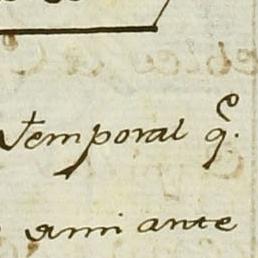 temporal q.^e
ami ante